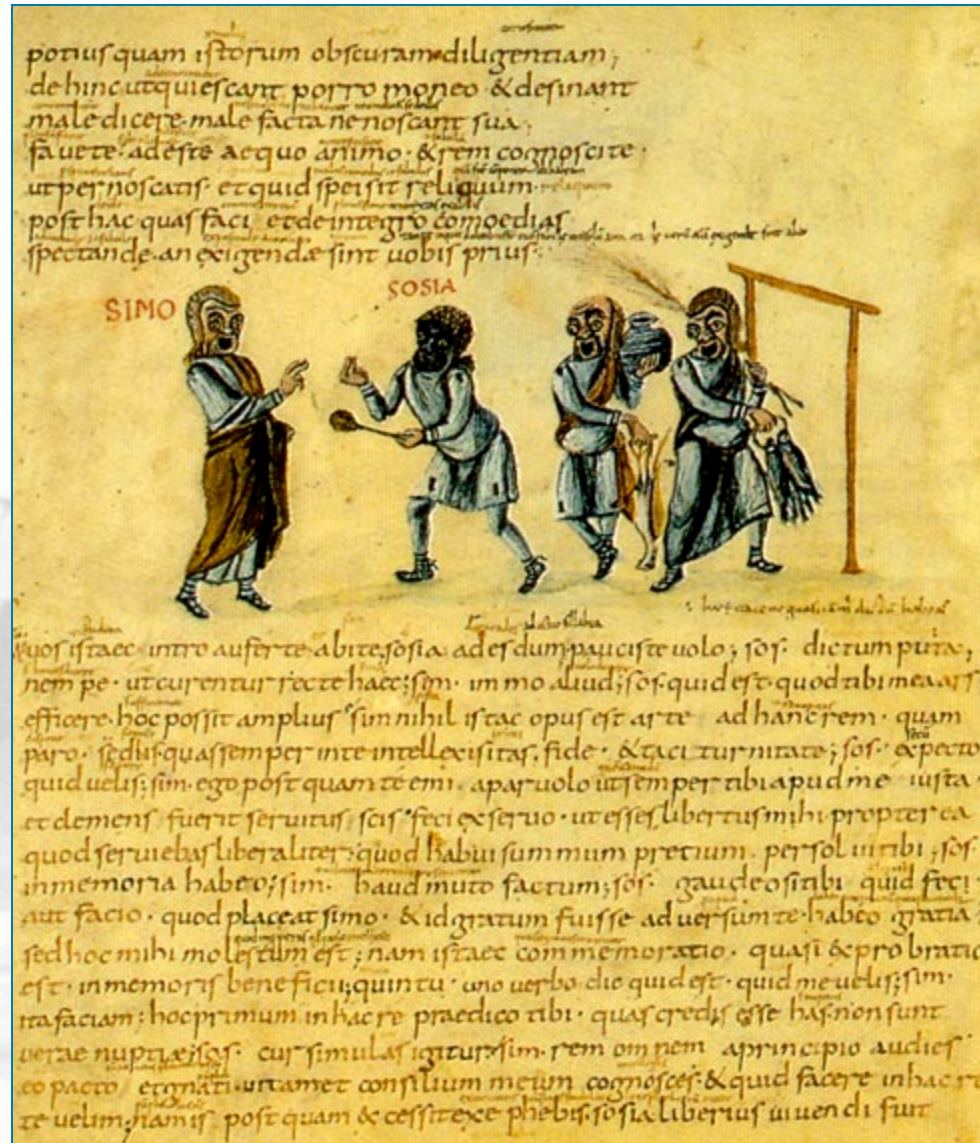 potius quam istorum obscuram diligentiam;
de hinc ut quiescant porro moneo & desinant
male dicere· male facta ne noscant sua;
favete· adeste aequo animo· & rem cognoscite·
ut pernoscatis· et quid spei sit reliquum·
post hac quas faciet de integro comoedias
spectande· an exigendæ sint vobis prius·
SIMO SOSIA
vos istaec intro auferte· abite; sosia ades dum· paucis te volo; sos· dictum puta;
nem pe· ut curentur recte haec; sim· immo aliud; sos· quid est· quod tibi mea ars
efficere· hoc possit amplius· sim nihil istac opus est arte ad hanc rem· quam
paro· sed iis· quas semper in te intellexi sitas, fide· & taciturnitate; sos· expecto
quid velis; sim· ego post quam te emi· a parvolo ut semper tibi apud me iusta·
et clemens fuerit servitus scis· feci ex servo· ut esses libertus mihi propter ea
quod serviebas liberaliter; quod habui summum pretium· persolvi tibi; sos·
in memoria habeo; sim· haud muto factum; sos· gaudeo si tibi quid feci·
aut facio· quod placeat simo· & id gratum fuisse adversum te· habeo gratia
sed hoc mihi molestum est; nam istaec commemoratio· quasi exprobratio
est· inmemoris beneficii; quin tu· uno verbo dic quid est· quid me velis; sim·
ita faciam; hoc primum in hac re praedico tibi· quas credis esse has· non sunt
verae nuptiæ; sos· cur simulas igitur; sim· rem omnem a principio audies
eo pacto et gnati· vitam et consilium meum cognosces· & quid facere in hac re
te velim; nam is post quam excessit ex ephebis· sosia liberius vivendi fuit